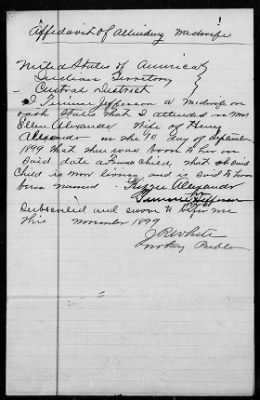 Affidavit of Attending Midwife
United States of America
Indian Territory
Central District
I Jefferson a Midwife on
oath State that I attended on Mrs
Ellen Alexander Wife of Henry
Alexander on the day of September
1899 that there was born to her on
Said date a Child, that Said
Child is now living and is said to have
been named Alexander
Jefferson
Subscribed and sworn to before me
this November 1899
J R White
Notary Public